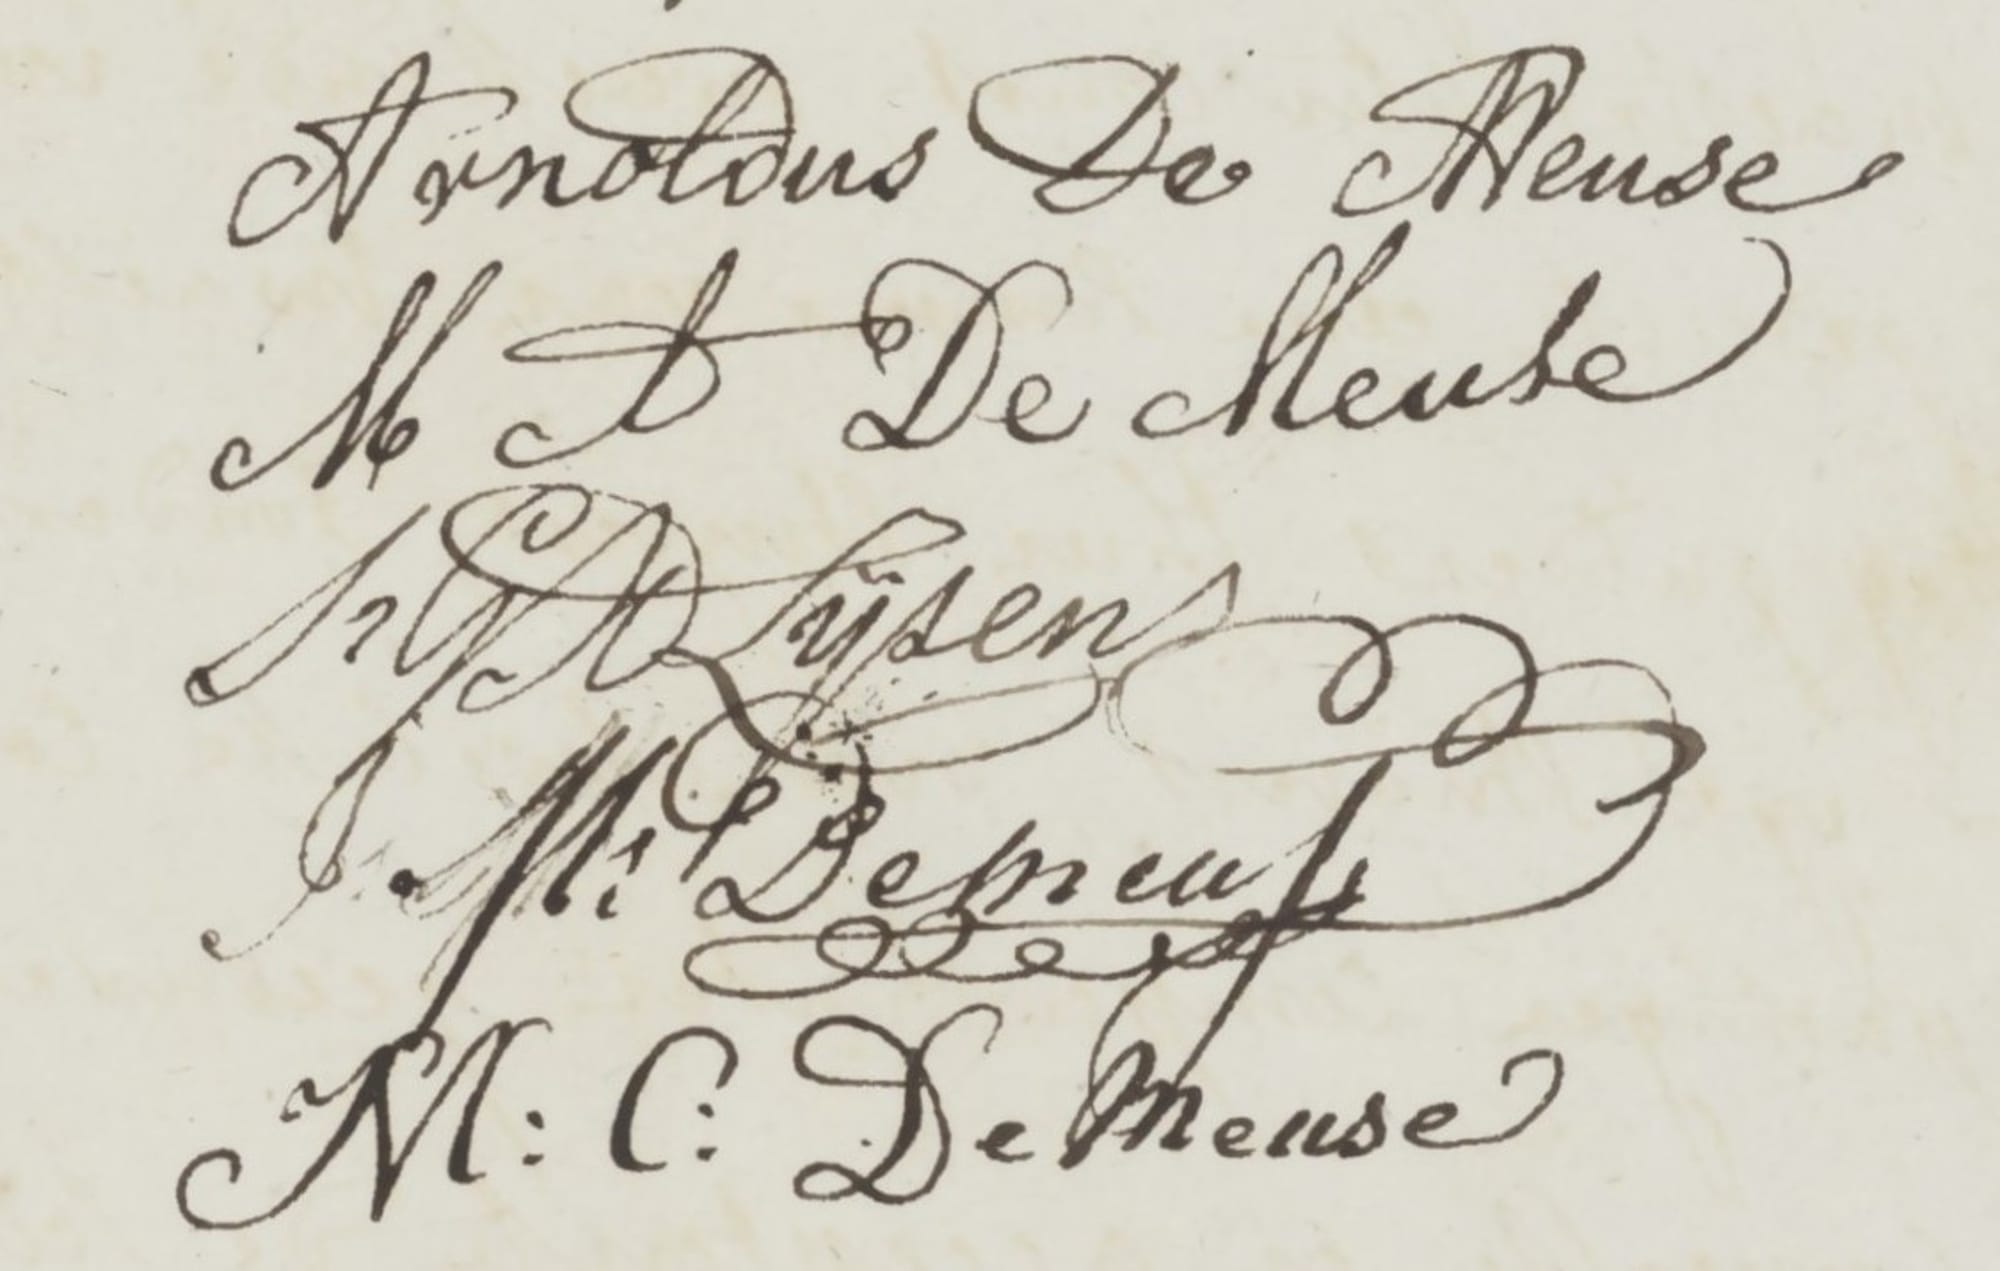 Arnoldus De Meuse
M A De Meuse
Lijsens
J. M. Demeuse
M: C: De Meuse